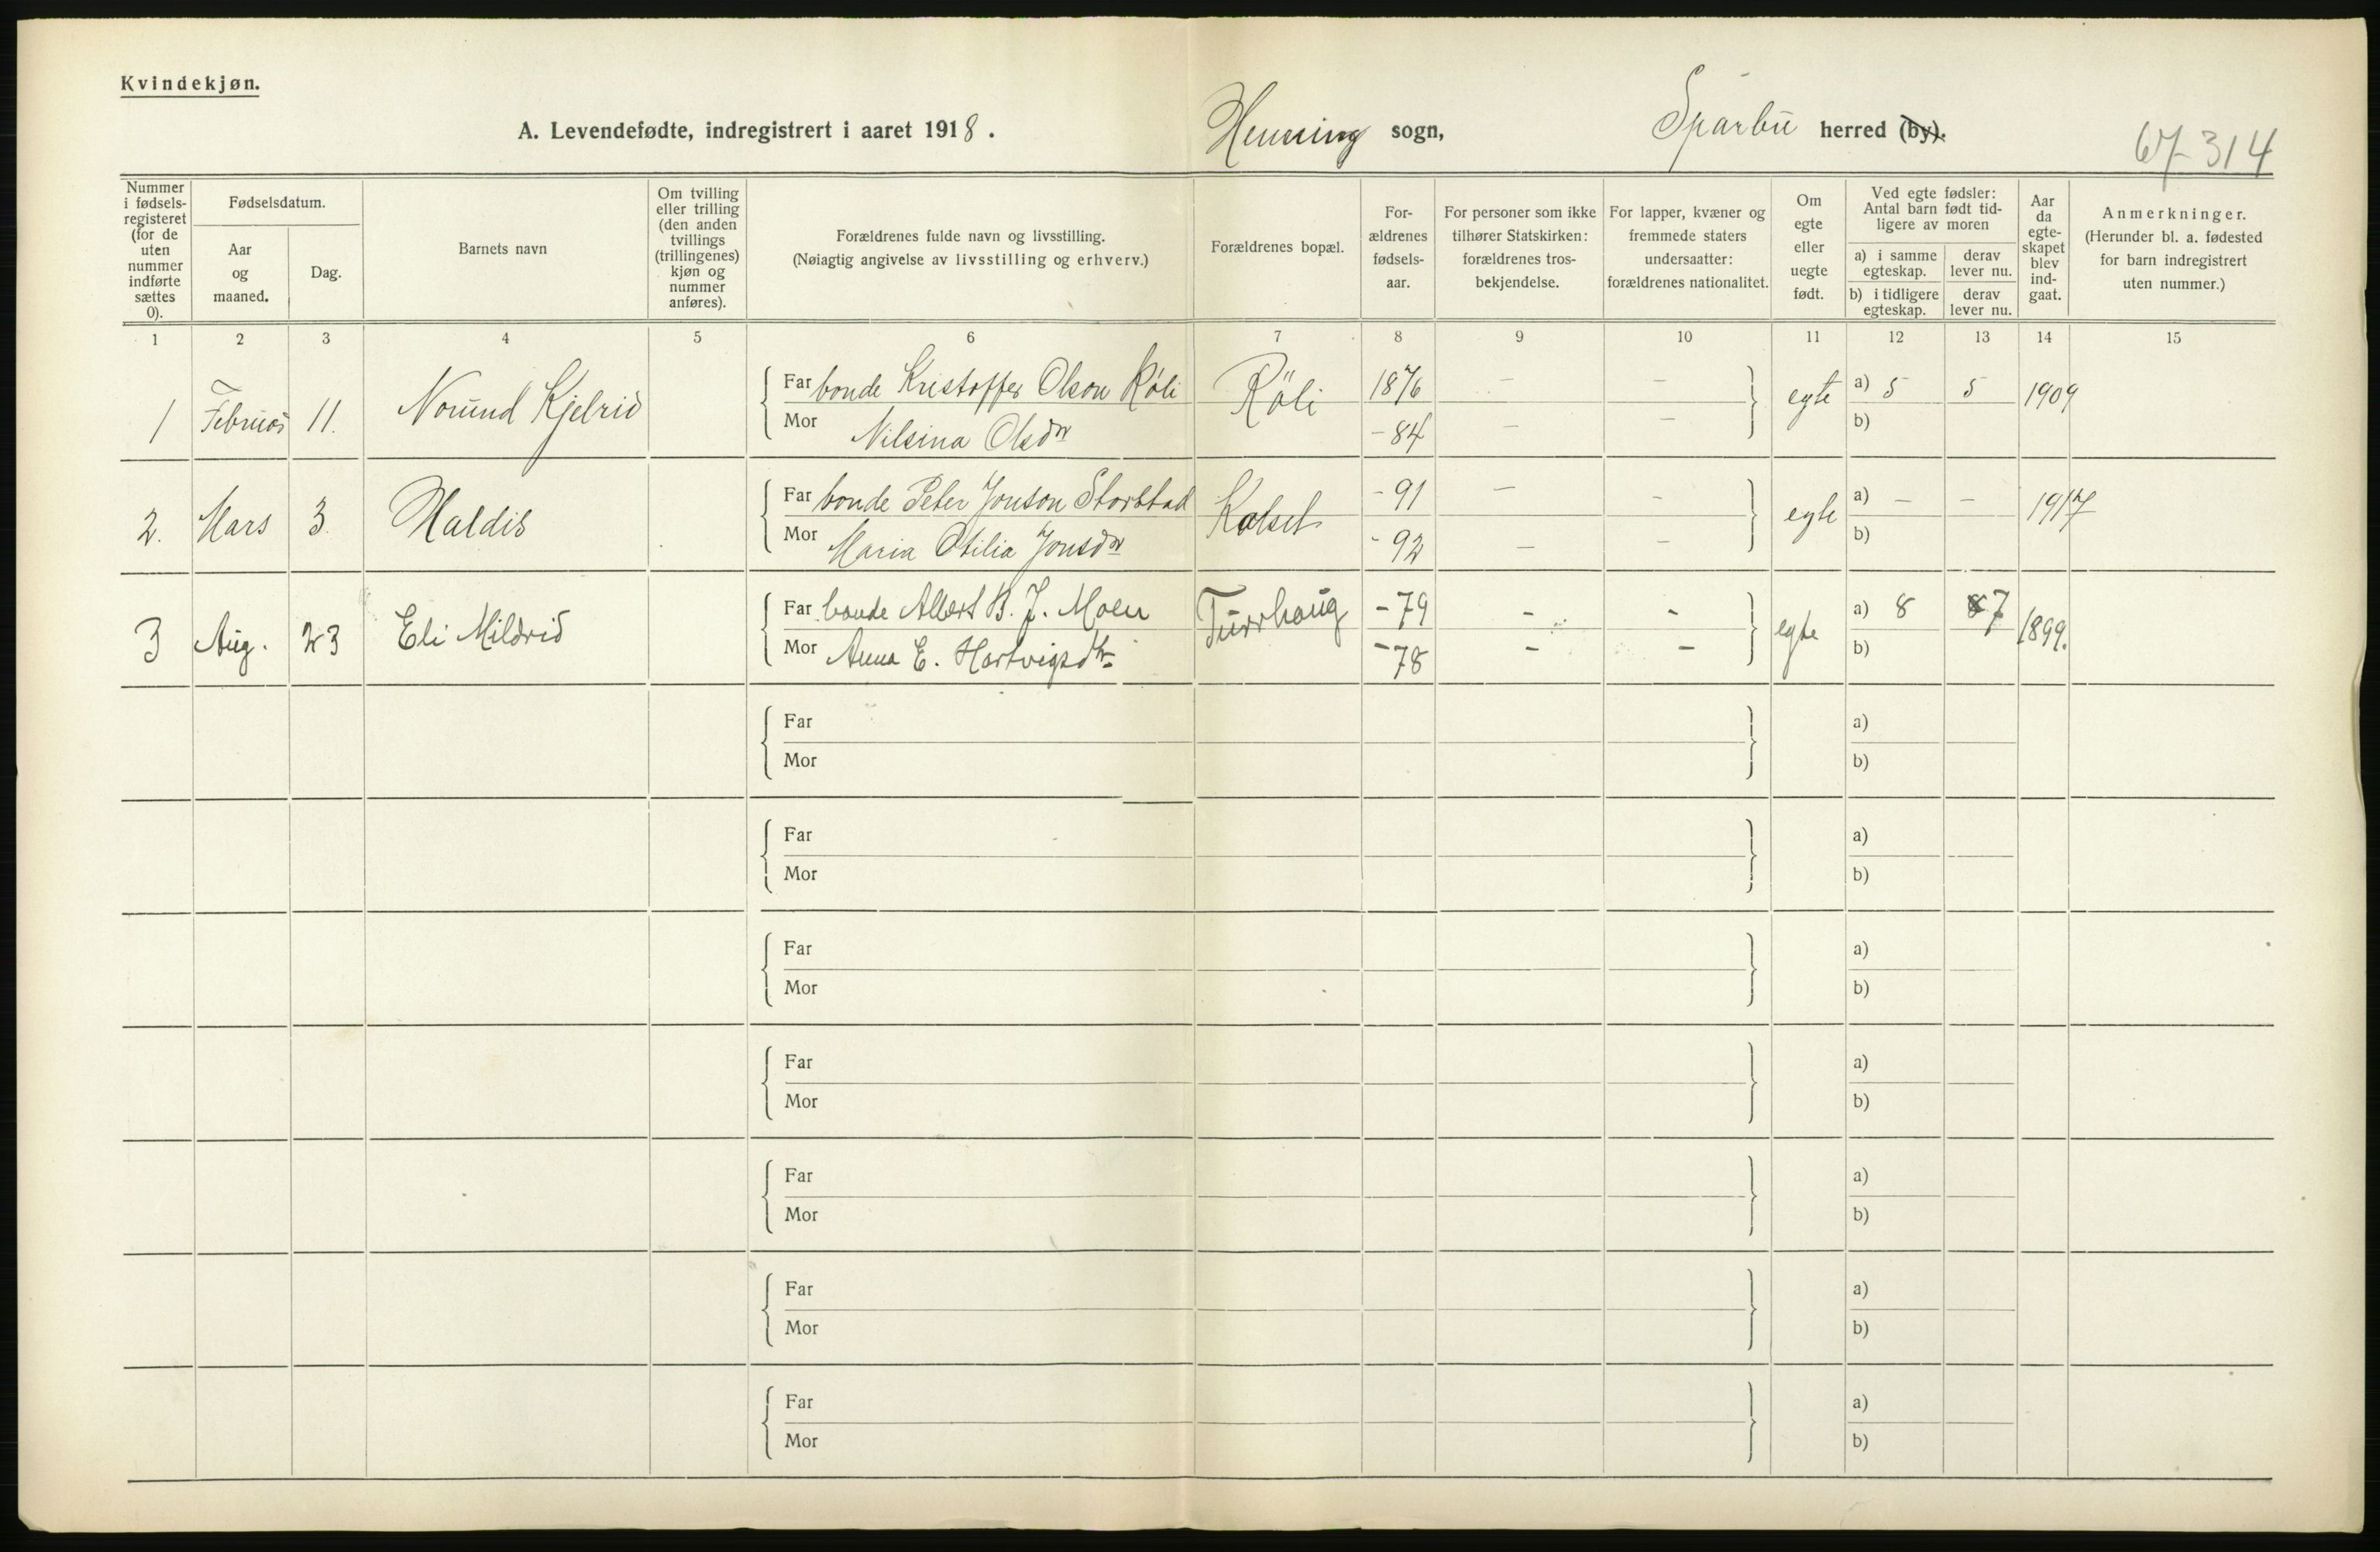 Kvindekjøn.
A. Levendefødte, indregistrert i aaret 1918. Henning sogn, Sparbu herred (by).
67-314
Nummer i fødsels-registeret (for de uten nummer indførte sættes 0).
Fødselsdatum.
Aar og maaned.
Dag.
Barnets navn
Om tvilling eller trilling (den anden tvillings (trillingenes) kjøn og nummer anføres).
Forældrenes fulde navn og livsstilling.
(Nøiagtig angivelse av livsstilling og erhverv.)
Forældrenes bopæl.
For-ældrenes fødsels-aar.
For personer som ikke tilhører Statskirken: forældrenes tros-bekjendelse.
For lapper, kvæner og fremmede staters undersaatter: forældrenes nationalitet.
Om egte eller uegte født.
Ved egte fødsler: Antal barn født tid-ligere av moren
a) i samme egteskap. derav lever nu.
b) i tidligere egteskap. derav lever nu.
Aar da egte-skapet blev ind-gaat.
Anmerkninger.
(Herunder bl. a. fødested for barn indregistrert uten nummer.)
1 2 3 4 5 6 7 8 9 10 11 12 13 14 15
1 Februar 11. Norund Kjelrid Far bonde Kristoffer Olson Röli Röli 1876 – – egte a) 5 5 1909
Mor Nilsina Olsdtr – 84 – – b)
2. Mars 3. Haldis Far bonde Peter Jonson Storstad Kolset – 91 – – egte a) – – 1917
Mor Maria Otilia Jonsdtr – 92 – – b)
3 Aug. 23 Eli Mildrid Far bonde Albert B. J. Moen Turrhaug – 79 – – egte a) 8 8 7 1899.
Mor Anna E. Hartvigsdtr – 78 – – b)
Far a)
Mor b)
Far a)
Mor b)
Far a)
Mor b)
Far a)
Mor b)
Far a)
Mor b)
Far a)
Mor b)
Far a)
Mor b)